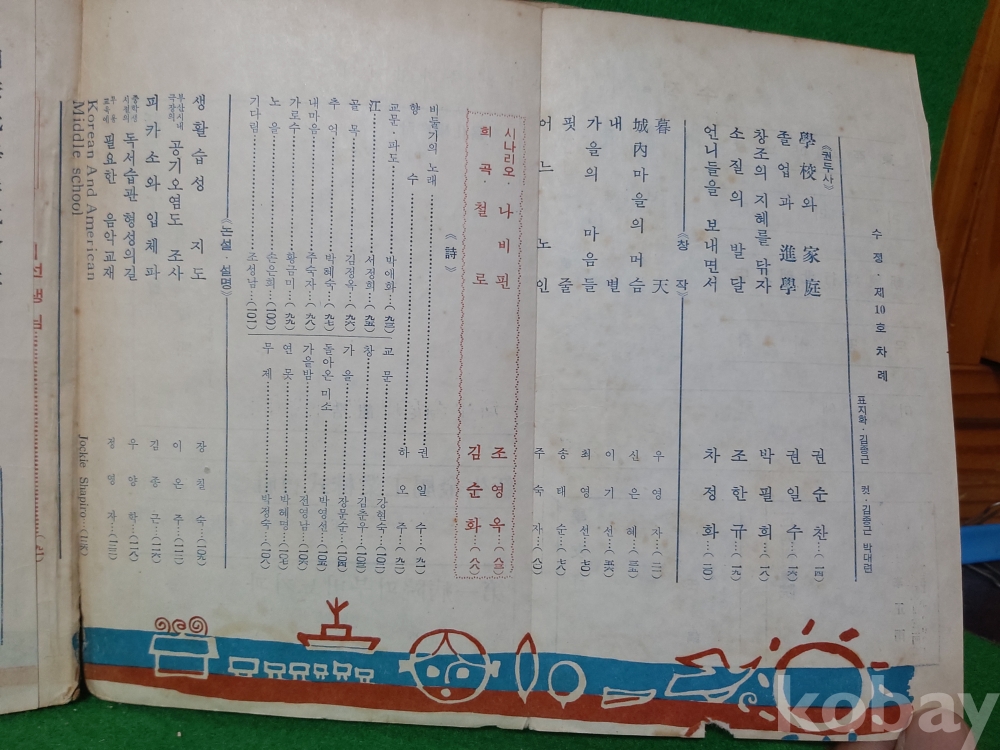 수정·제10호 차례
표지화·김종근 컷·김종근 박대련
《권두사》
學校와 家庭 권순찬…(一四)
졸업과 進學 권일수…(一六)
창조의 지혜를 닦자 박필희…(一八)
소질의 발달 조한규…(一九)
언니들을 보내면서 차정화…(二〇)
《창작》
暮天 우영자…(二一)
城內마을의 머슴 신은혜…(三五)
내별 이기선…(五六)
가을의 마음들 최영선…(七〇)
핏줄 송태순…(七八)
어느 노인 주숙자…(八〇)
시나리오·나비핀 조영옥…(八三)
희곡·철로 김순화…(八八)
《詩》
비둘기의 노래 권일수
향수 하오주
교문·파도 박애화…(九三)
江 서정희…(九五)
골목 김정옥…(九六)
추억 박혜숙…(九七)
내마음 주숙자…(九八)
가로수 황금미…(九九)
노을 손은희…(100)
기다림 조성남…(101)
교문 강현숙…(10二)
창 김춘우…(10三)
가을 장문순…(10四)
돌아온 미소 박영선…(10五)
가을밤 전영남…(10六)
연못 박혜명…(10七)
무제 박정숙…(10八)
《논설·설명》
생활습성 지도 강칠숙…(10九)
부산시내 극장의 공기오염도 조사 이온주
피카소와 입체파 김종근
중학생 시절의 독서습관 형성의 길 우양학
필요한 음악교재 정영자
Korean And American
Middle school
Jockie Shapiro
kobay